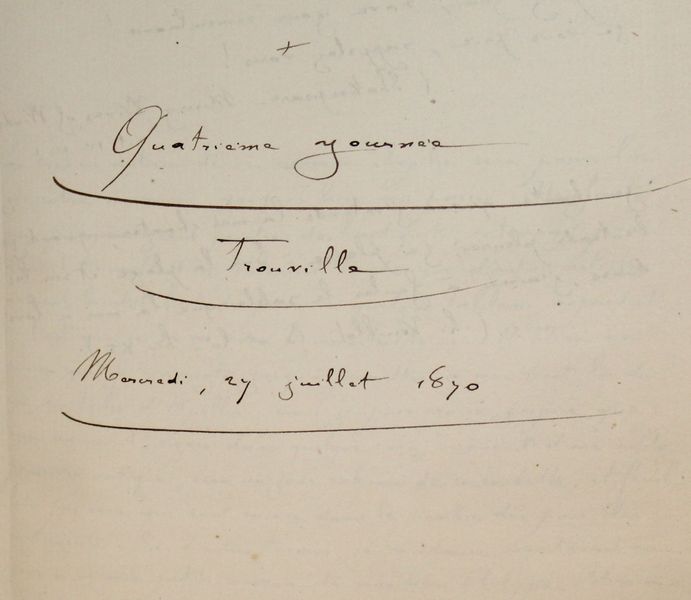 +
Quatrième journée
Trouville
Mercredi, 27 juillet 1870